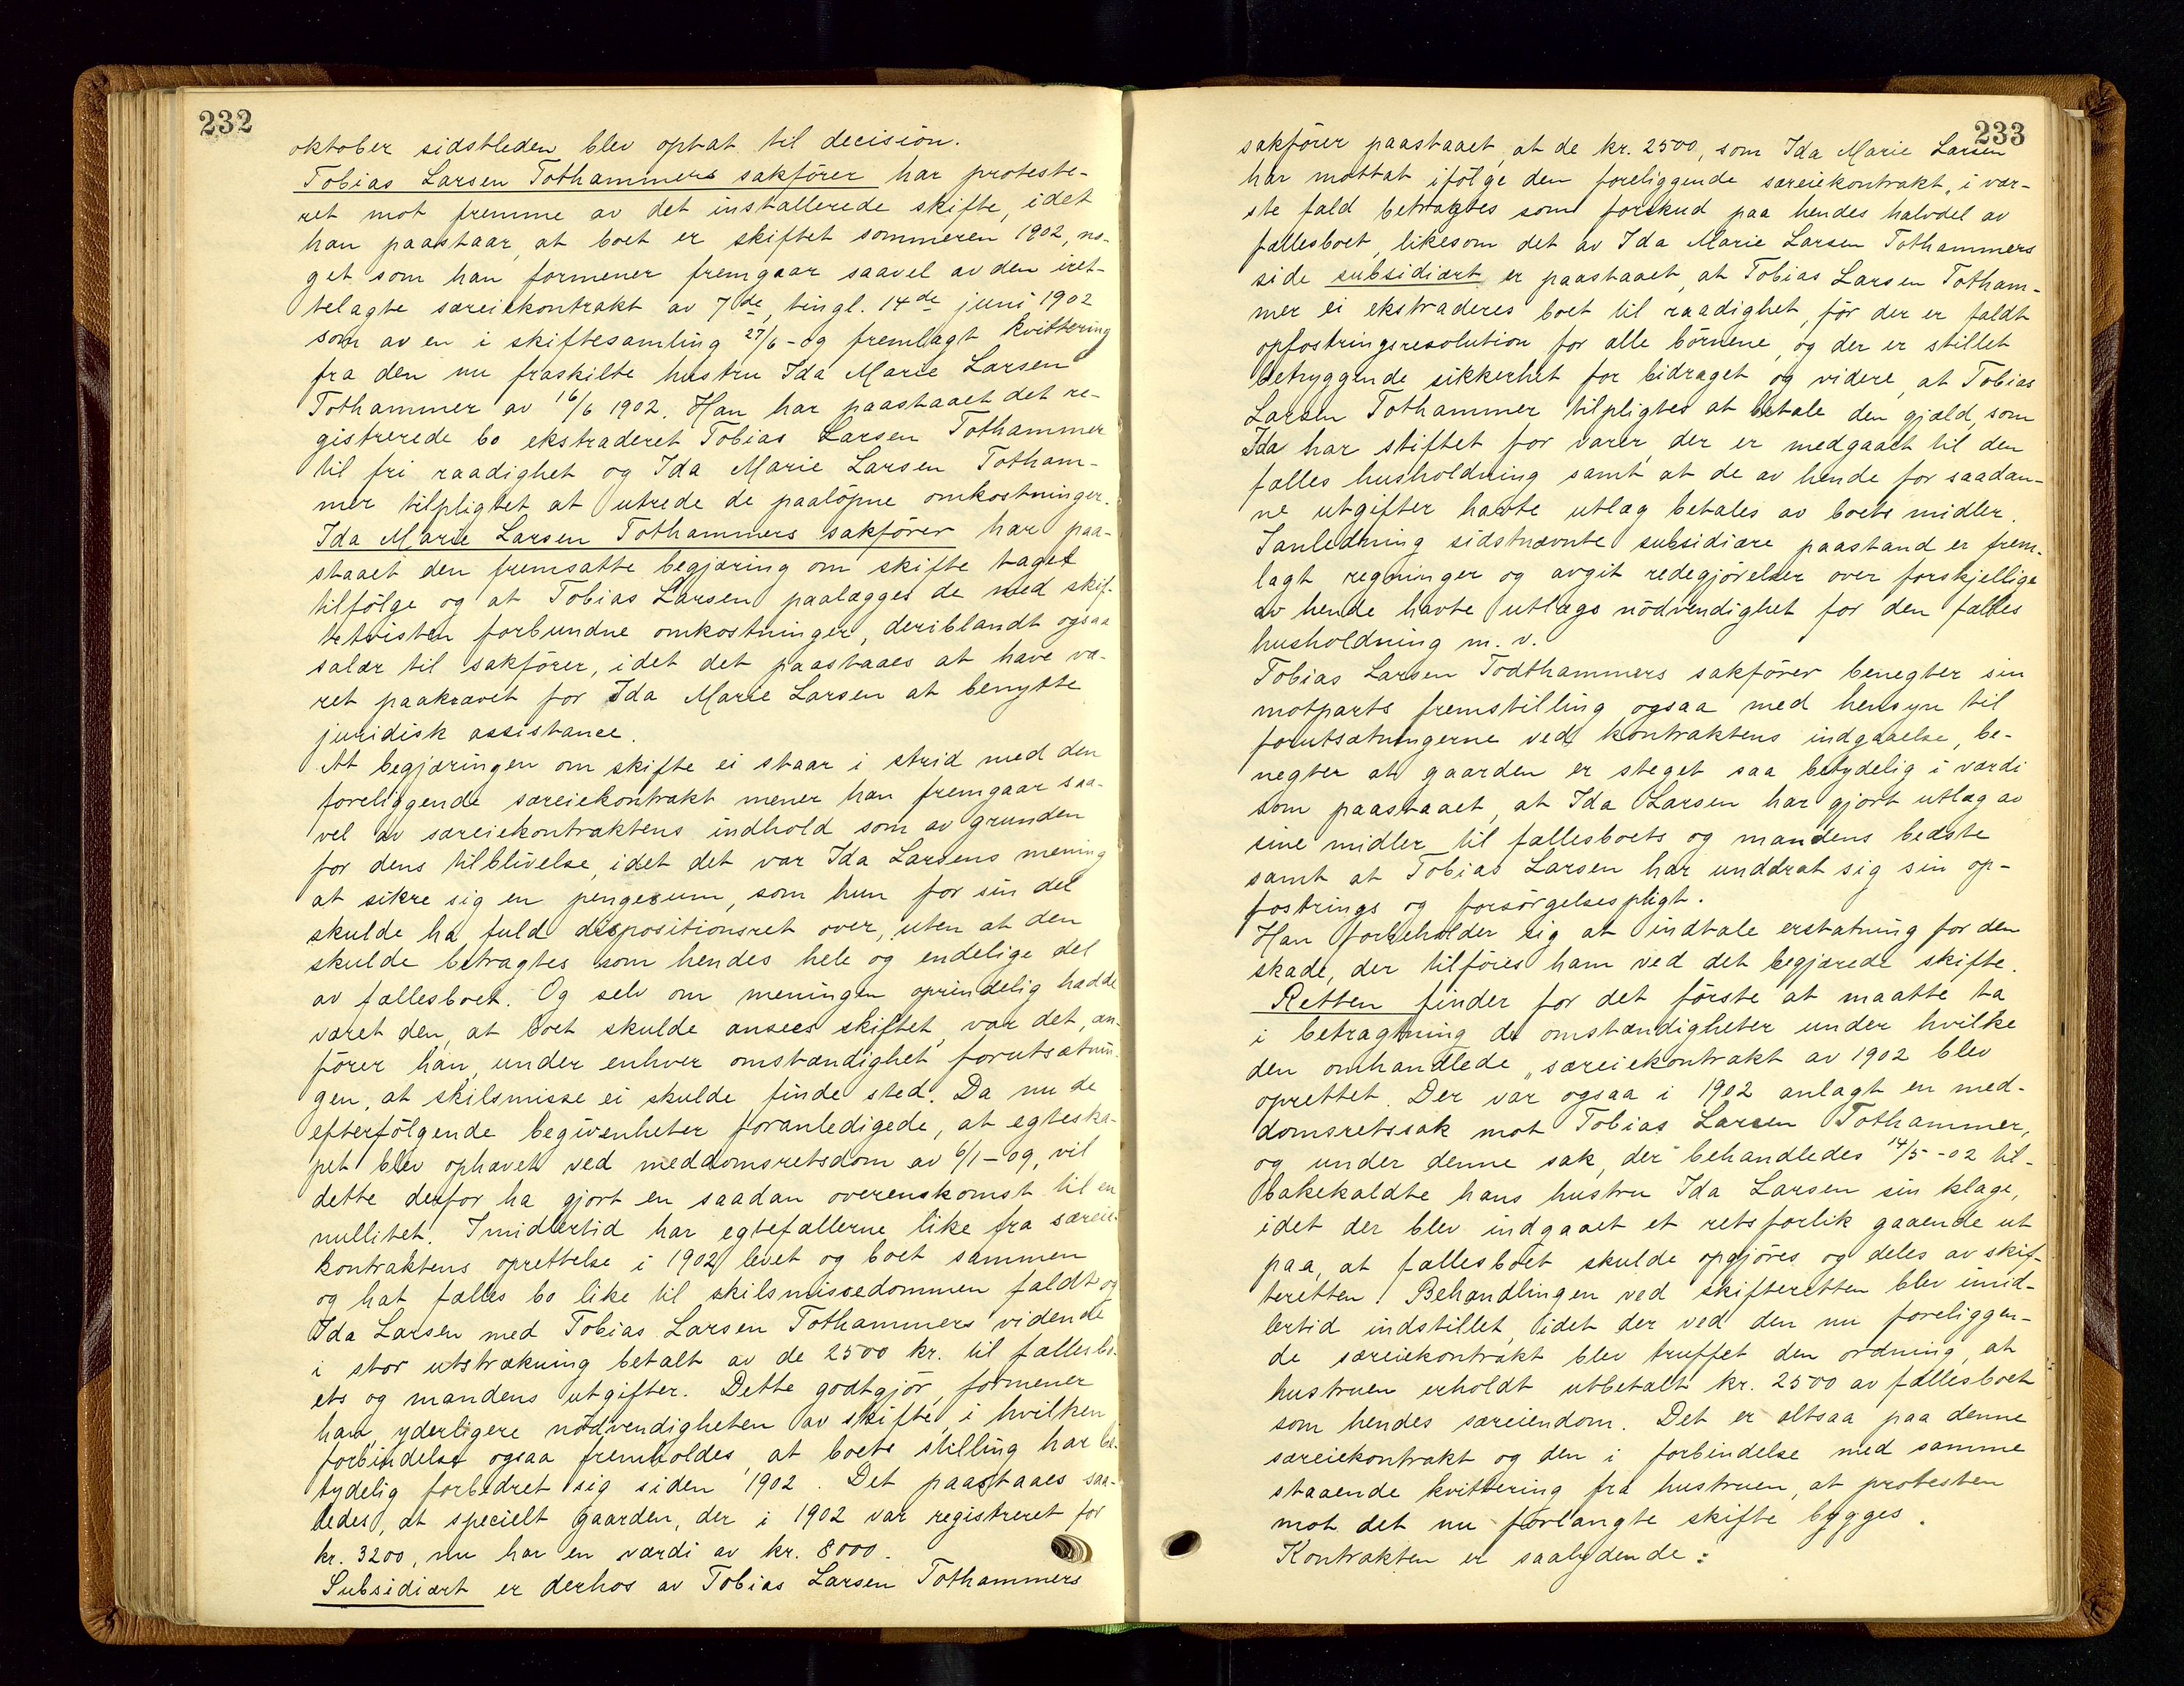 232
oktober sidstleden blev optat til decision.
Tobias Larsen Tothammers sakfører har proteste-
ret mot fremme av det installerede skifte, idet
han paastaar, at boet er skiftet sommeren 1902, no-
get som han formener fremgaar saavel av den iret-
telagte særeiekontrakt av 7de, tingl. 14de juni 1902
som av en i skiftesamling 27/6 - og fremlagt kvittering
fra den nu fraskilte hustru Ida Marie Larsen
Tothammer av 16/6 1902. Han har paastaaet det re-
gistrerede bo ekstraderet Tobias Larsen Tothammer
til fri raadighet og Ida Marie Larsen Totham-
mer tilpligtet at utrede de paaløpne omkostninger.
Ida Marie Larsen Tothammers sakfører har paa-
staaet den fremsatte begjæring om skifte taget
tilfølge og at Tobias Larsen paalægges de med skif-
tetvisten forbundne omkostninger, deriblandt ogsaa
salær til sakfører, idet det paastaaes at have væ-
ret paakrævet for Ida Marie Larsen at benytte
juridisk assistance.
At begjæringen om skifte ei staar i strid med den
foreliggende særeiekontrakt mener han fremgaar saa-
vel av særeiekontraktens indhold som av grunden
for dens tilblivelse, idet det var Ida Larsens mening
at sikre sig en pengesum, som hun for sin del
skulde ha fuld dispositionsret over, uten at den
skulde betragtes som hendes hele og endelige del
av fællesboet. Og selv om meningen oprindelig hadde
været den, at boet skulde ansees skiftet, var det, an-
fører han, under enhver omstændighet forutsætnin-
gen, at skilsmisse ei skulde finde sted. Da nu de
efterfølgende begivenheter foranledigede, at egteska-
pet blev ophævet ved meddomsretsdom av 6/1-09, vil
dette derfor ha gjort en saadan overenskomst til en
nullitet. Imidlertid har egtefællerne like fra særeie-
kontraktens oprettelse i 1902 levet og boet sammen
og hat fælles bo like til skilsmissedommen faldt og
Ida Larsen med Tobias Larsen Tothammers vidende
i stor utstrækning betalt av de 2500 kr. til fællesbo-
ets og mandens utgifter. Dette godtgjør, formener
han, yderligere nødvendigheten av skifte, i hvilken
forbindelse ogsaa fremholdes, at boets stilling har be-
tydelig forbedret sig siden 1902. Det paastaaes saa-
ledes, at specielt gaarden, der i 1902 var registreret for
kr. 3200, nu har en værdi av kr. 8000.
Subsidiært er derhos av Tobias Larsen Tothammers
233
sakfører paastaaet, at de kr. 2500, som Ida Marie Larsen
har mottat ifølge den foreliggende særeiekontrakt, i vær-
ste fald betragtes som forskud paa hendes halvdel av
fællesboet, likesom det av Ida Marie Larsen Tothammers
side subsidiært er paastaaet, at Tobias Larsen Totham-
mer ei ekstraderes boet til raadighet, før der er faldt
opfostringsresolution for alle børnene, og der er stillet
betryggende sikkerhet for bidraget og videre, at Tobias
Larsen Tothammer tilpligtes at betale den gjæld, som
Ida har stiftet for varer, der er medgaadt til den
fælles husholdning samt at de av hende for saadan-
ne utgifter havte utlæg betales av boets midler.
I anledning sidstnævnte subsidiære paastand er frem-
lagt regninger og avgit redegjørelser over forskjellige
av hende havte utlægs nødvendighet for den fælles
husholdning m. v.
Tobias Larsen Todthammers sakfører benegter sin
motparts fremstilling ogsaa med hensyn til
forutsætningerne ved kontraktens indgaaelse, be-
negter at gaarden er steget saa betydelig i værdi
som paastaaet, at Ida Larsen har gjort utlæg av
sine midler til fællesboets og mandens bedste
samt at Tobias Larsen har unddrat sig sin op-
fostrings og forsørgelsespligt.
Han forbeholder sig at indtale erstatning for den
skade, der tilføres ham ved det begjærede skifte.
Retten finder for det første at maatte ta
i betragtning de omstændigheter under hvilke
den omhandlede „særeiekontrakt av 1902 blev
oprettet. Der var ogsaa i 1902 anlagt en med-
domsretssak mot Tobias Larsen Tothammer,
og under denne sak, der behandledes 14/5 -02 til-
bakekaldte hans hustru Ida Larsen sin klage,
idet der blev indgaaet et retsforlik gaaende ut
paa, at fællesboet skulde opgjøres og deles av skif-
teretten. Behandlingen ved skifteretten blev imid-
lertid indstillet, idet der ved den nu foreliggen-
de særeiekontrakt blev truffet den ordning, at
hustruen erholdt utbetalt kr. 2500 av fællesboet
som hendes særeiendom. Det er altsaa paa denne
særeiekontrakt og den i forbindelse med samme
staaende kvittering fra hustruen, at protesten
mot det nu forlangte skifte bygges.
Kontrakten er saalydende: